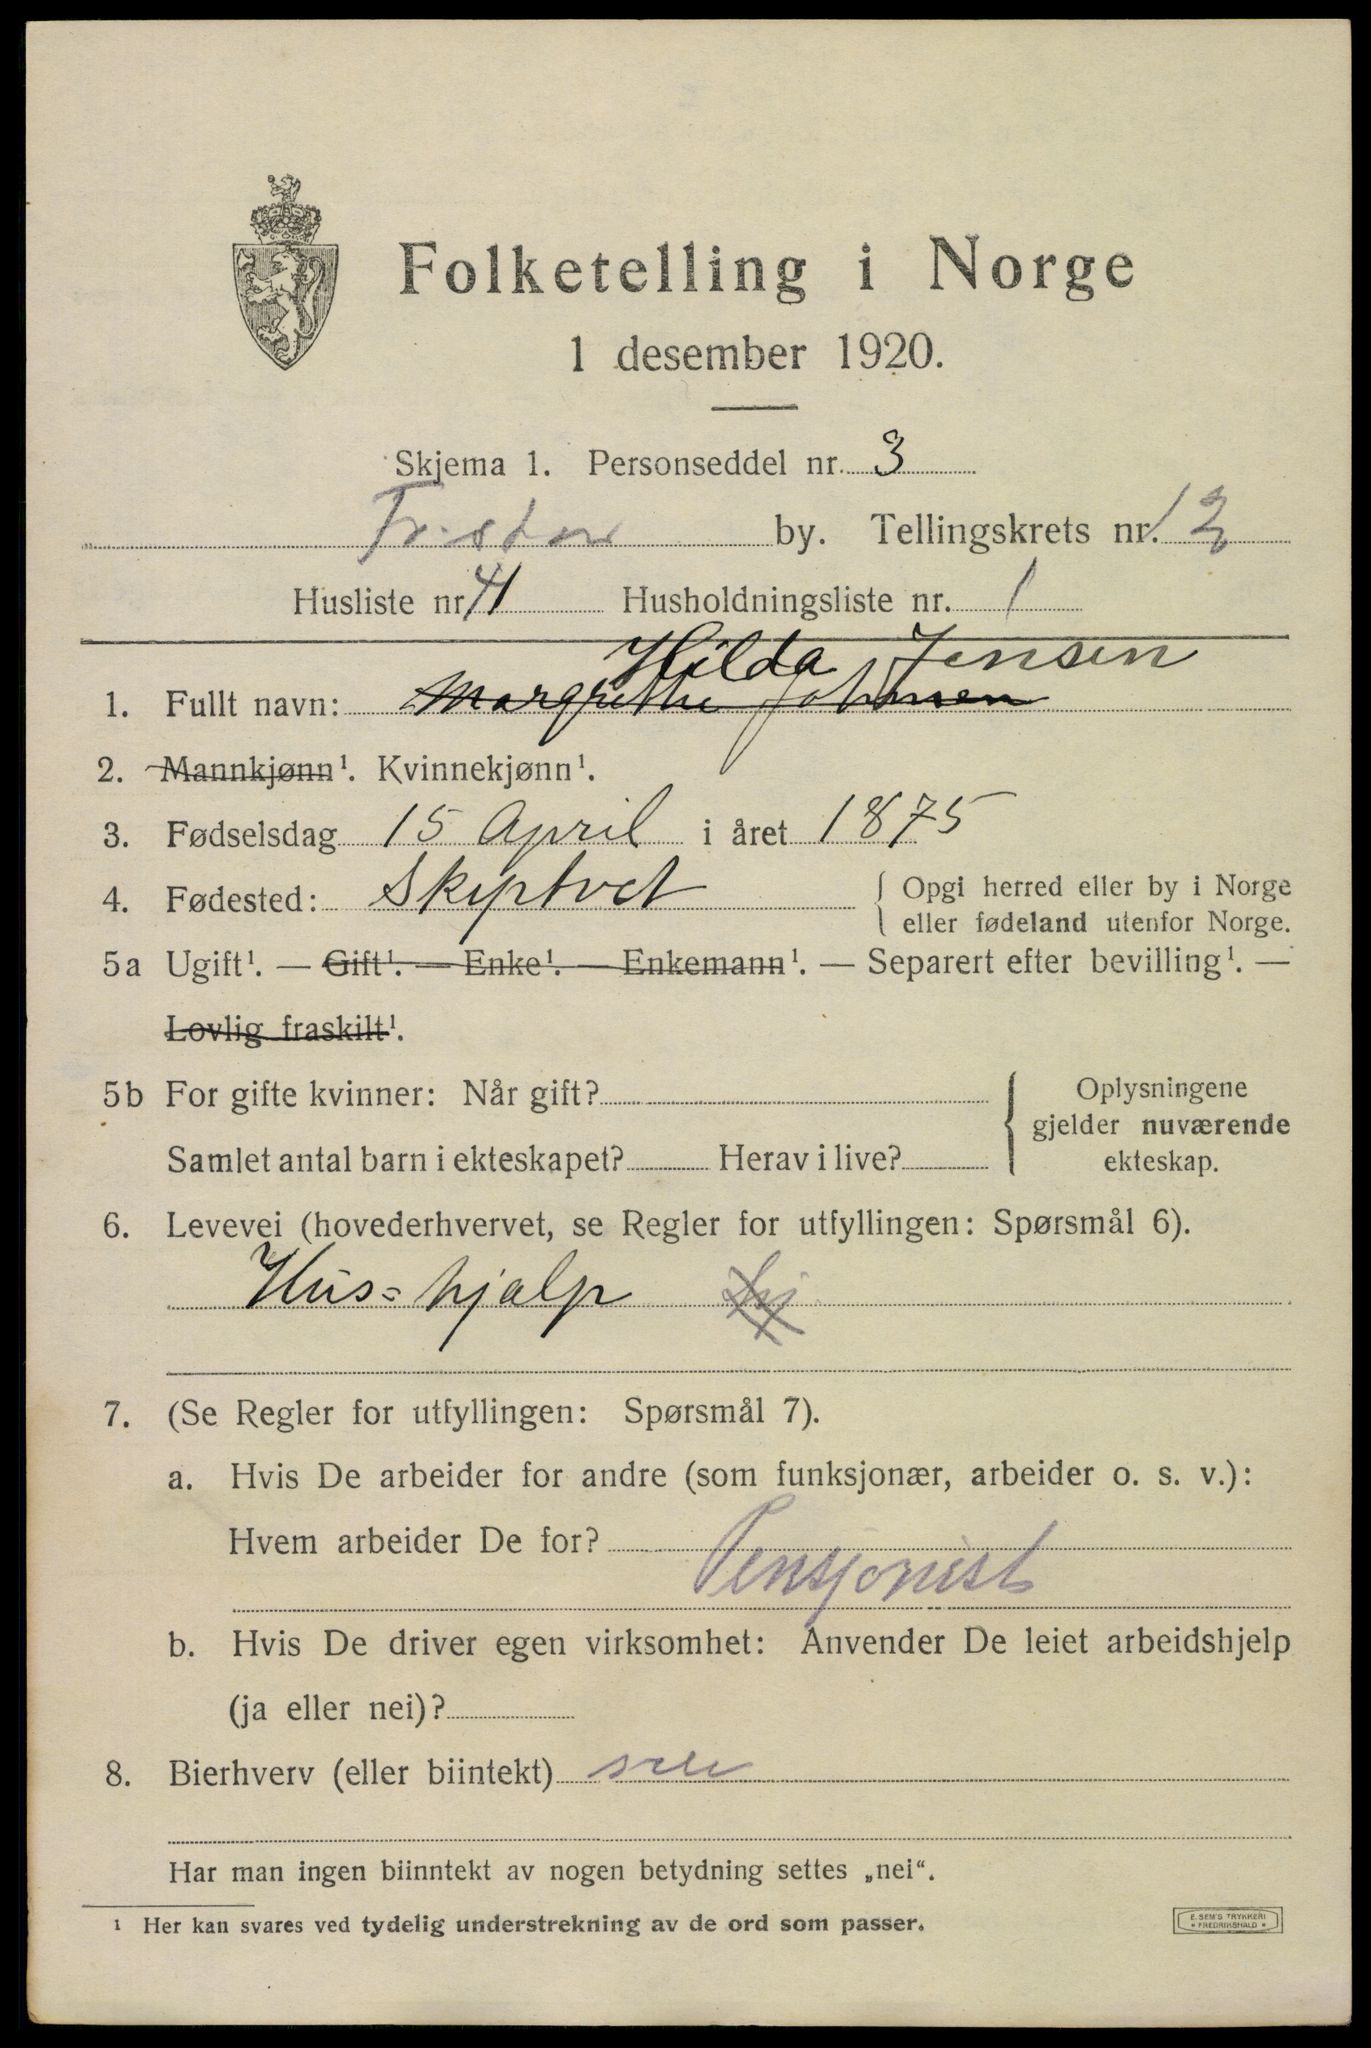 Folketelling i Norge
1 desember 1920.
Skjema 1. Personseddel nr. 3
Fr.stad by. Tellingskrets nr. 12
Husliste nr. 41 Husholdningsliste nr. 1
Hilda Jensen
1. Fullt navn: Margrethe Johnsen
2. Mannkjønn¹. Kvinnekjønn¹.
3. Fødselsdag 15 April i året 1875
4. Fødested: Skiptvet { Opgi herred eller by i Norge
eller fødeland utenfor Norge.
5a Ugift¹. — Gift¹. — Enke¹. — Enkemann¹. — Separert efter bevilling¹. —
Lovlig fraskilt¹.
5b For gifte kvinner: Når gift? { Oplysningene
gjelder nuværende
Samlet antal barn i ekteskapet? Herav i live? ekteskap.
6. Levevei (hovederhvervet, se Regler for utfyllingen: Spørsmål 6).
Hus=hjalp hj
7. (Se Regler for utfyllingen: Spørsmål 7).
a. Hvis De arbeider for andre (som funksjonær, arbeider o. s. v.):
Hvem arbeider De for?
Pensjonist
b. Hvis De driver egen virksomhet: Anvender De leiet arbeidshjelp
(ja eller nei)?
8. Bierhverv (eller biintekt)
Har man ingen biinntekt av nogen betydning settes „nei“.
¹ Her kan svares ved tydelig understrekning av de ord som passer.
E. SEM'S TRYKKERI
FREDRIKSHALD